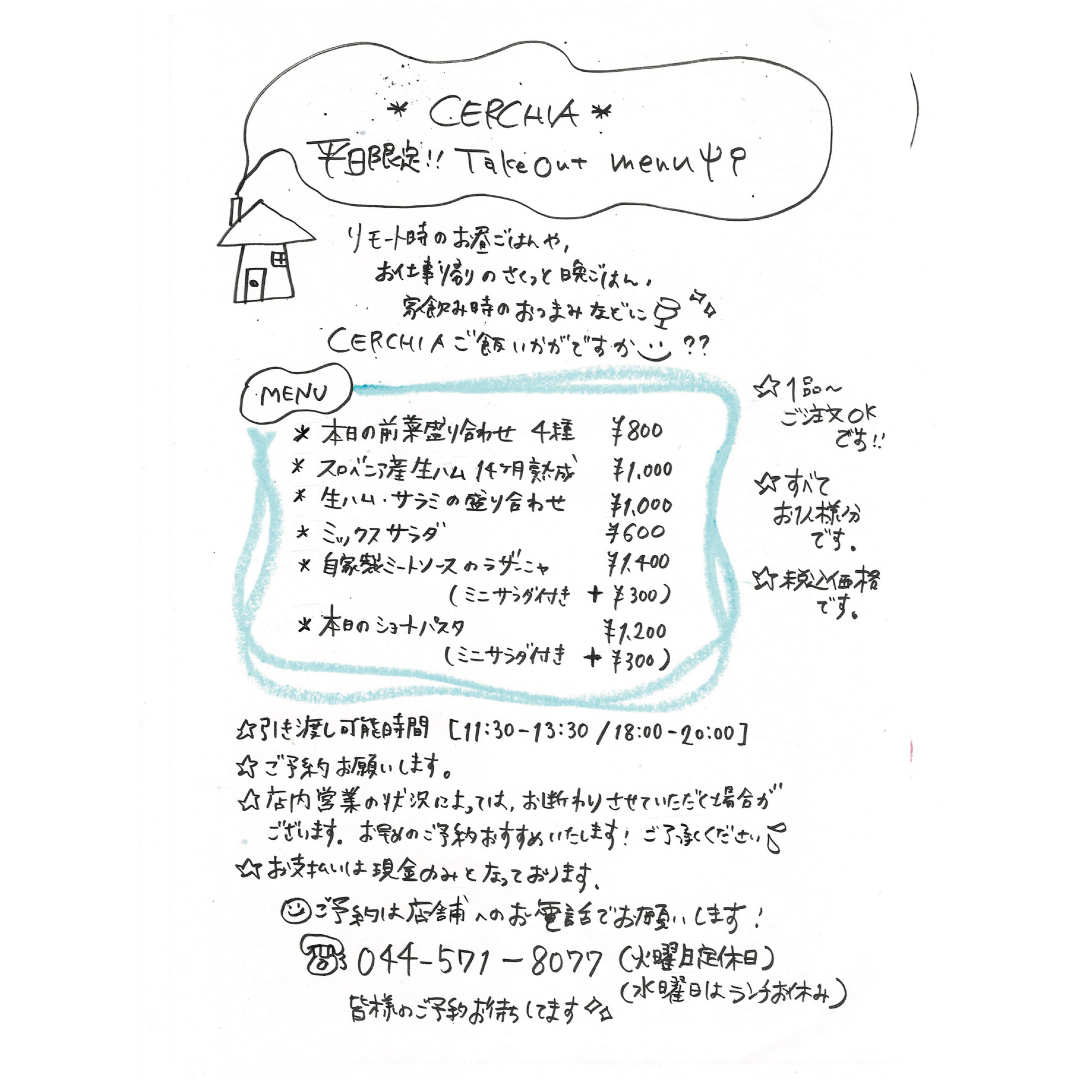 * CERCHIA *
平日限定!! Take Out menu
リモート時のお昼ごはんや,
お仕事帰りのさくっと晩ごはん,
家飲み時のおつまみなどに
CERCHIAご飯いかがですか ??
MENU
* 本日の前菜盛り合わせ 4種 ¥800
* スロベニア産生ハム 14ヶ月熟成 ¥1,000
* 生ハム・サラミの盛り合わせ ¥1,000
* ミックスサラダ ¥600
* 自家製ミートソースのラザーニャ ¥1,400
(ミニサラダ付き + ¥300)
* 本日のショートパスタ ¥1,200
(ミニサラダ付き + ¥300)
☆1品〜
ご注文OK
です!!
☆すべて
お1人様分
です。
☆税込価格
です。
☆引き渡し可能時間 [11:30-13:30 / 18:00-20:00]
☆ご予約お願いします。
☆店内営業の状況によっては,お断わりさせていただく場合が
ございます。お早めのご予約おすすめいたします! ご了承ください
☆お支払いは現金のみとなっております。
ご予約は店舗へのお電話でお願いします!
044-571-8077 (火曜日定休日)
(水曜日はランチお休み)
皆様のご予約お待ちしてます